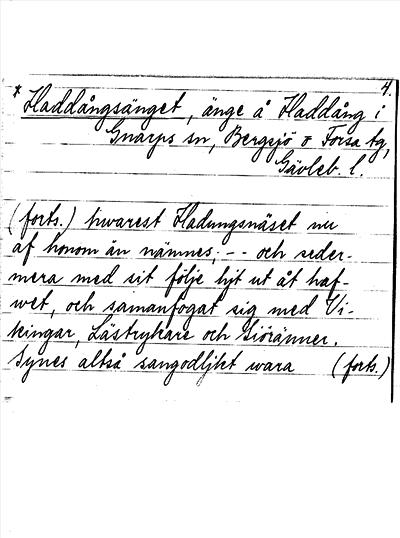 4.
* Haddångsänget, änge å Haddång i
Gnarps sn, Bergsjö o Forsa tg,
Gävleb. l.
(forts.) hwarest Hadungsnäset nu
af honom än nämnes; -- och seder-
mera med sit följe lyt ut åt haf-
wet, och samanfogat sig med Vi-
kingar, Lästrykare och Siöränner.
Synes altså sangodljkt wara (forts.)